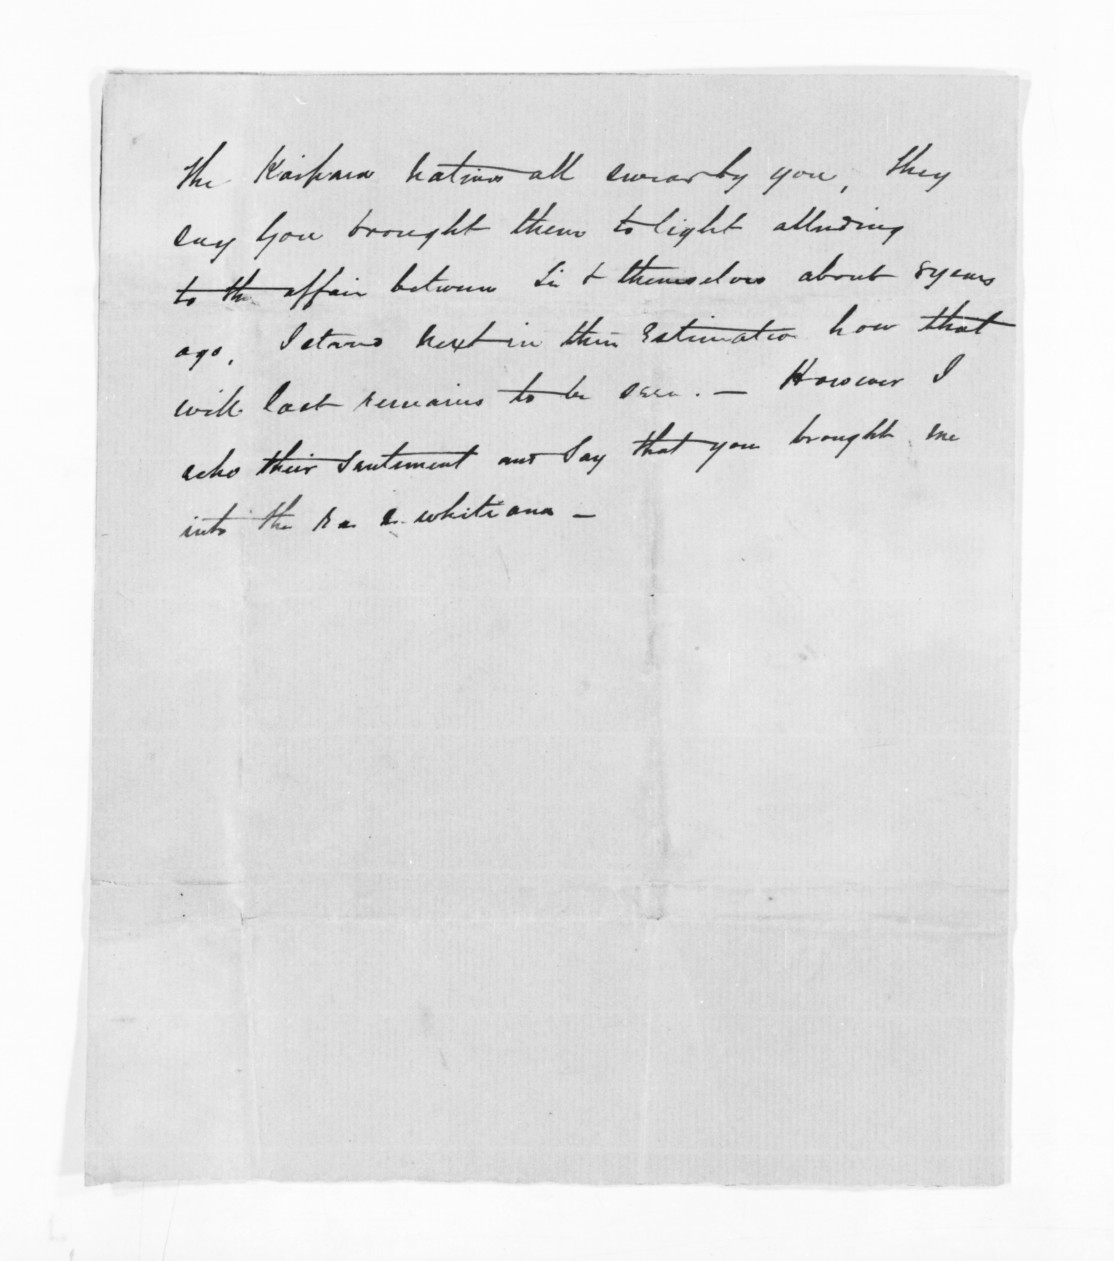 The Kaipara natives all swear by you, they
say you brought them to light alluding
to the affair between Tu & themselves about 8 years
ago, I stand next in their Estimatio how that
will last remains to be seen. — However I
echo their Sentiment and Say that you brought me
into the whitiana —